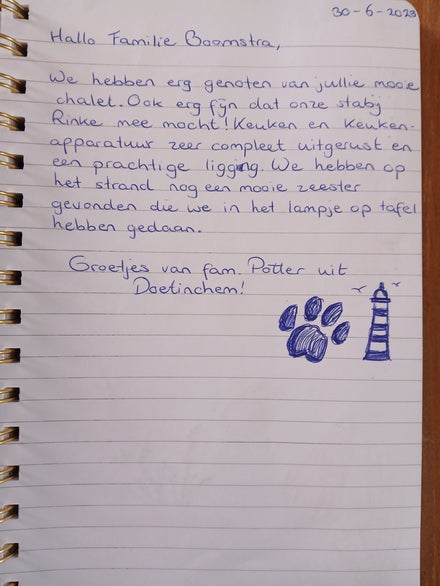 30-6-2023
Hallo Familie Boomstra,
We hebben erg genoten van jullie mooie
chalet. Ook erg fijn dat onze stabij
Rinke mee mocht! Keuken en keuken-
apparatuur zeer compleet uitgerust en
een prachtige ligging. We hebben op
het strand nog een mooie zeester
gevonden die we in het lampje op tafel
hebben gedaan.
Groetjes van fam. Potter uit
Doetinchem!